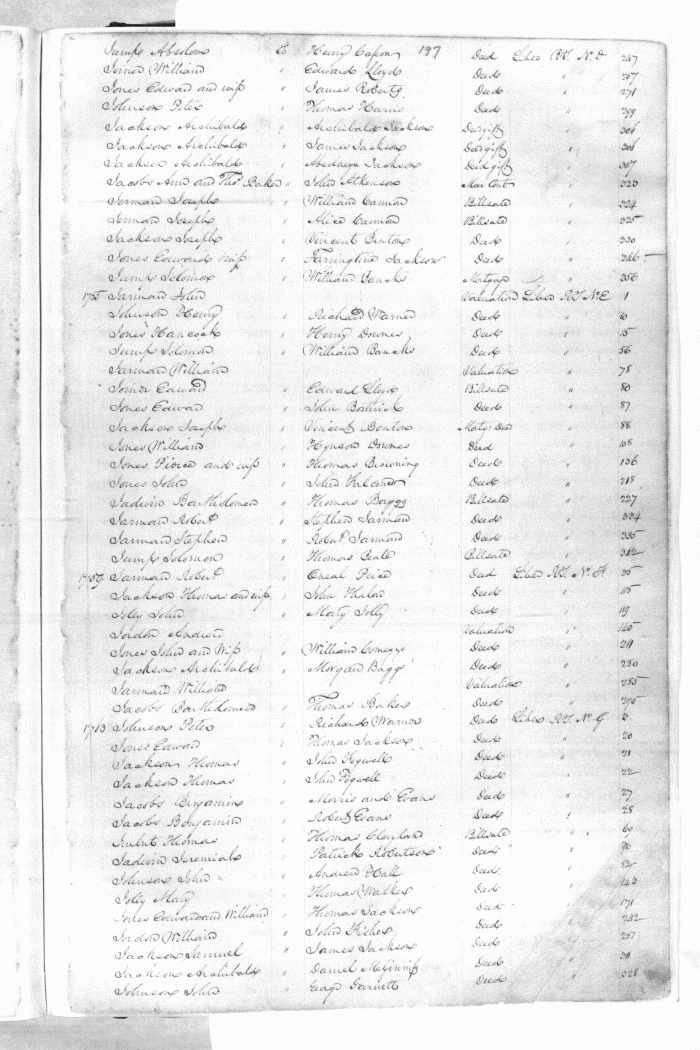 Jump Absolom to Henry Cason 197 Deed Liber RT. No D 247
Joiner William " Edward Lloyd Deed " 267
Jones Edward and wife " James Roberts Deed " 271
Johnson Peter " Thomas Harris Deed " 299
Jackson Archibald " Archibald Jackson Deed gift " 306
Jackson Archibald " James Jackson Deed gift " 306
Jackson Archibald " Abednego Jackson Deed gift " 307
Jacobs Ann and Thos Baker " John Atkinson Mar Cont " 323
Jerman Joseph " William Cannon Billsale " 324
Jerman Joseph " Alice Cannon Billsale " 325
Jackson Joseph " Vincent Benton Deed " 330
Jones Edward wife " Farrington Jackson Deed " 346
Jump Solomon " William Banks Mortgage " 356
Jarman John Valuation Liber RT. No E 1
Johnson Henry " Richard Warner Deed " 6
Jones Hancock " Henry Downes Deed " 15
Jump Solomon " William Banks Deed " 56
Jarman William Valuation " 78
Joiner Edward " Edward Lloyd Billsale " 80
Jones Edward " John Bostwick Deed " 87
Jackson Joseph " Vincent Benton Mortg Deed " 88
Jones William " Hynson Downes Deed " 108
Jones Peirce and wife " Thomas Browning Deed " 136
Jones John " John Falconar Deed " 218
Jadwin Bartholomew " Thomas Baggs Billsale " 227
Jarman Robert " Stephen Jarman Deed " 334
Jarman Stephen " Robert Jarman Deed " 335
Jump Solomon " Thomas Beale Billsale " 342
1759 Jarman Robert " Oneal Price Deed Liber RT. No F 35
Jackson Thomas and wife " John Harlow Deed " 115
Jolly John " Mary Jolly Deed " 119
Jordon Andrew Valuation " 145
Jones John and Wife " William Comegys Deed " 211
Jackson Archibald " Morgan Baggs Deed " 280
Jarman William Valuation " 285
Jacobs Bartholomew " Thomas Baker Deed " 295
1763 Johnson Peter " Richard Warner Deed Liber RT. No G 6
Jones Edward " Thomas Jackson Deed " 20
Jackson Thomas " John Fogwell Deed " 21
Jackson Thomas " John Fogwell Deed " 22
Jacobs Benjamin " Morris and Evans Deed " 27
Jacobs Benjamin " Robert Evans Deed " 28
Thomas " Thomas Clayland Billsale " 69
Jadwin Jeremiah " Patrick Robertson Deed " 70
Johnson John " Andrew Hall Deed "
Jolly Mary " Thomas Walker Deed " 143
Jones Edward and William " Thomas Jackson Deed " 171
Jordon William " John Fisher Deed " 242
Jackson Samuel " James Jackson Deed " 257
Jackson Archibald " Daniel Deed "
Johnson John " George Garnett Deed " 328